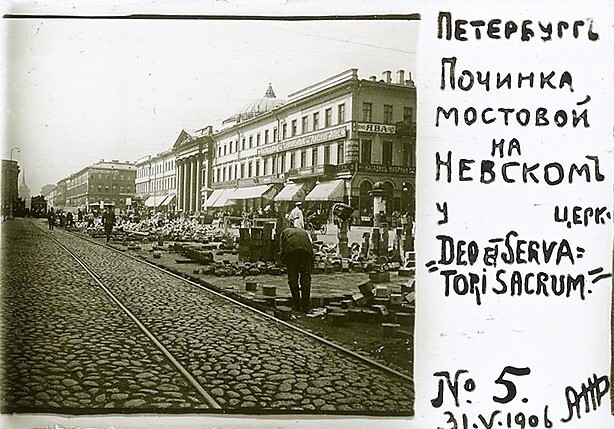 ПЕТЕРБУРГЪ
ПОЧИНКА
МОСТОВОЙ
НА
НЕВСКОМЪ
У ЦЕРК.
"DEO et SERVA=
TORI SACRUM."
№ 5.
31.V.1906
ЯВА